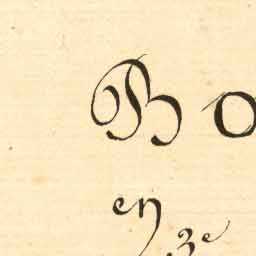 BO
en
3e